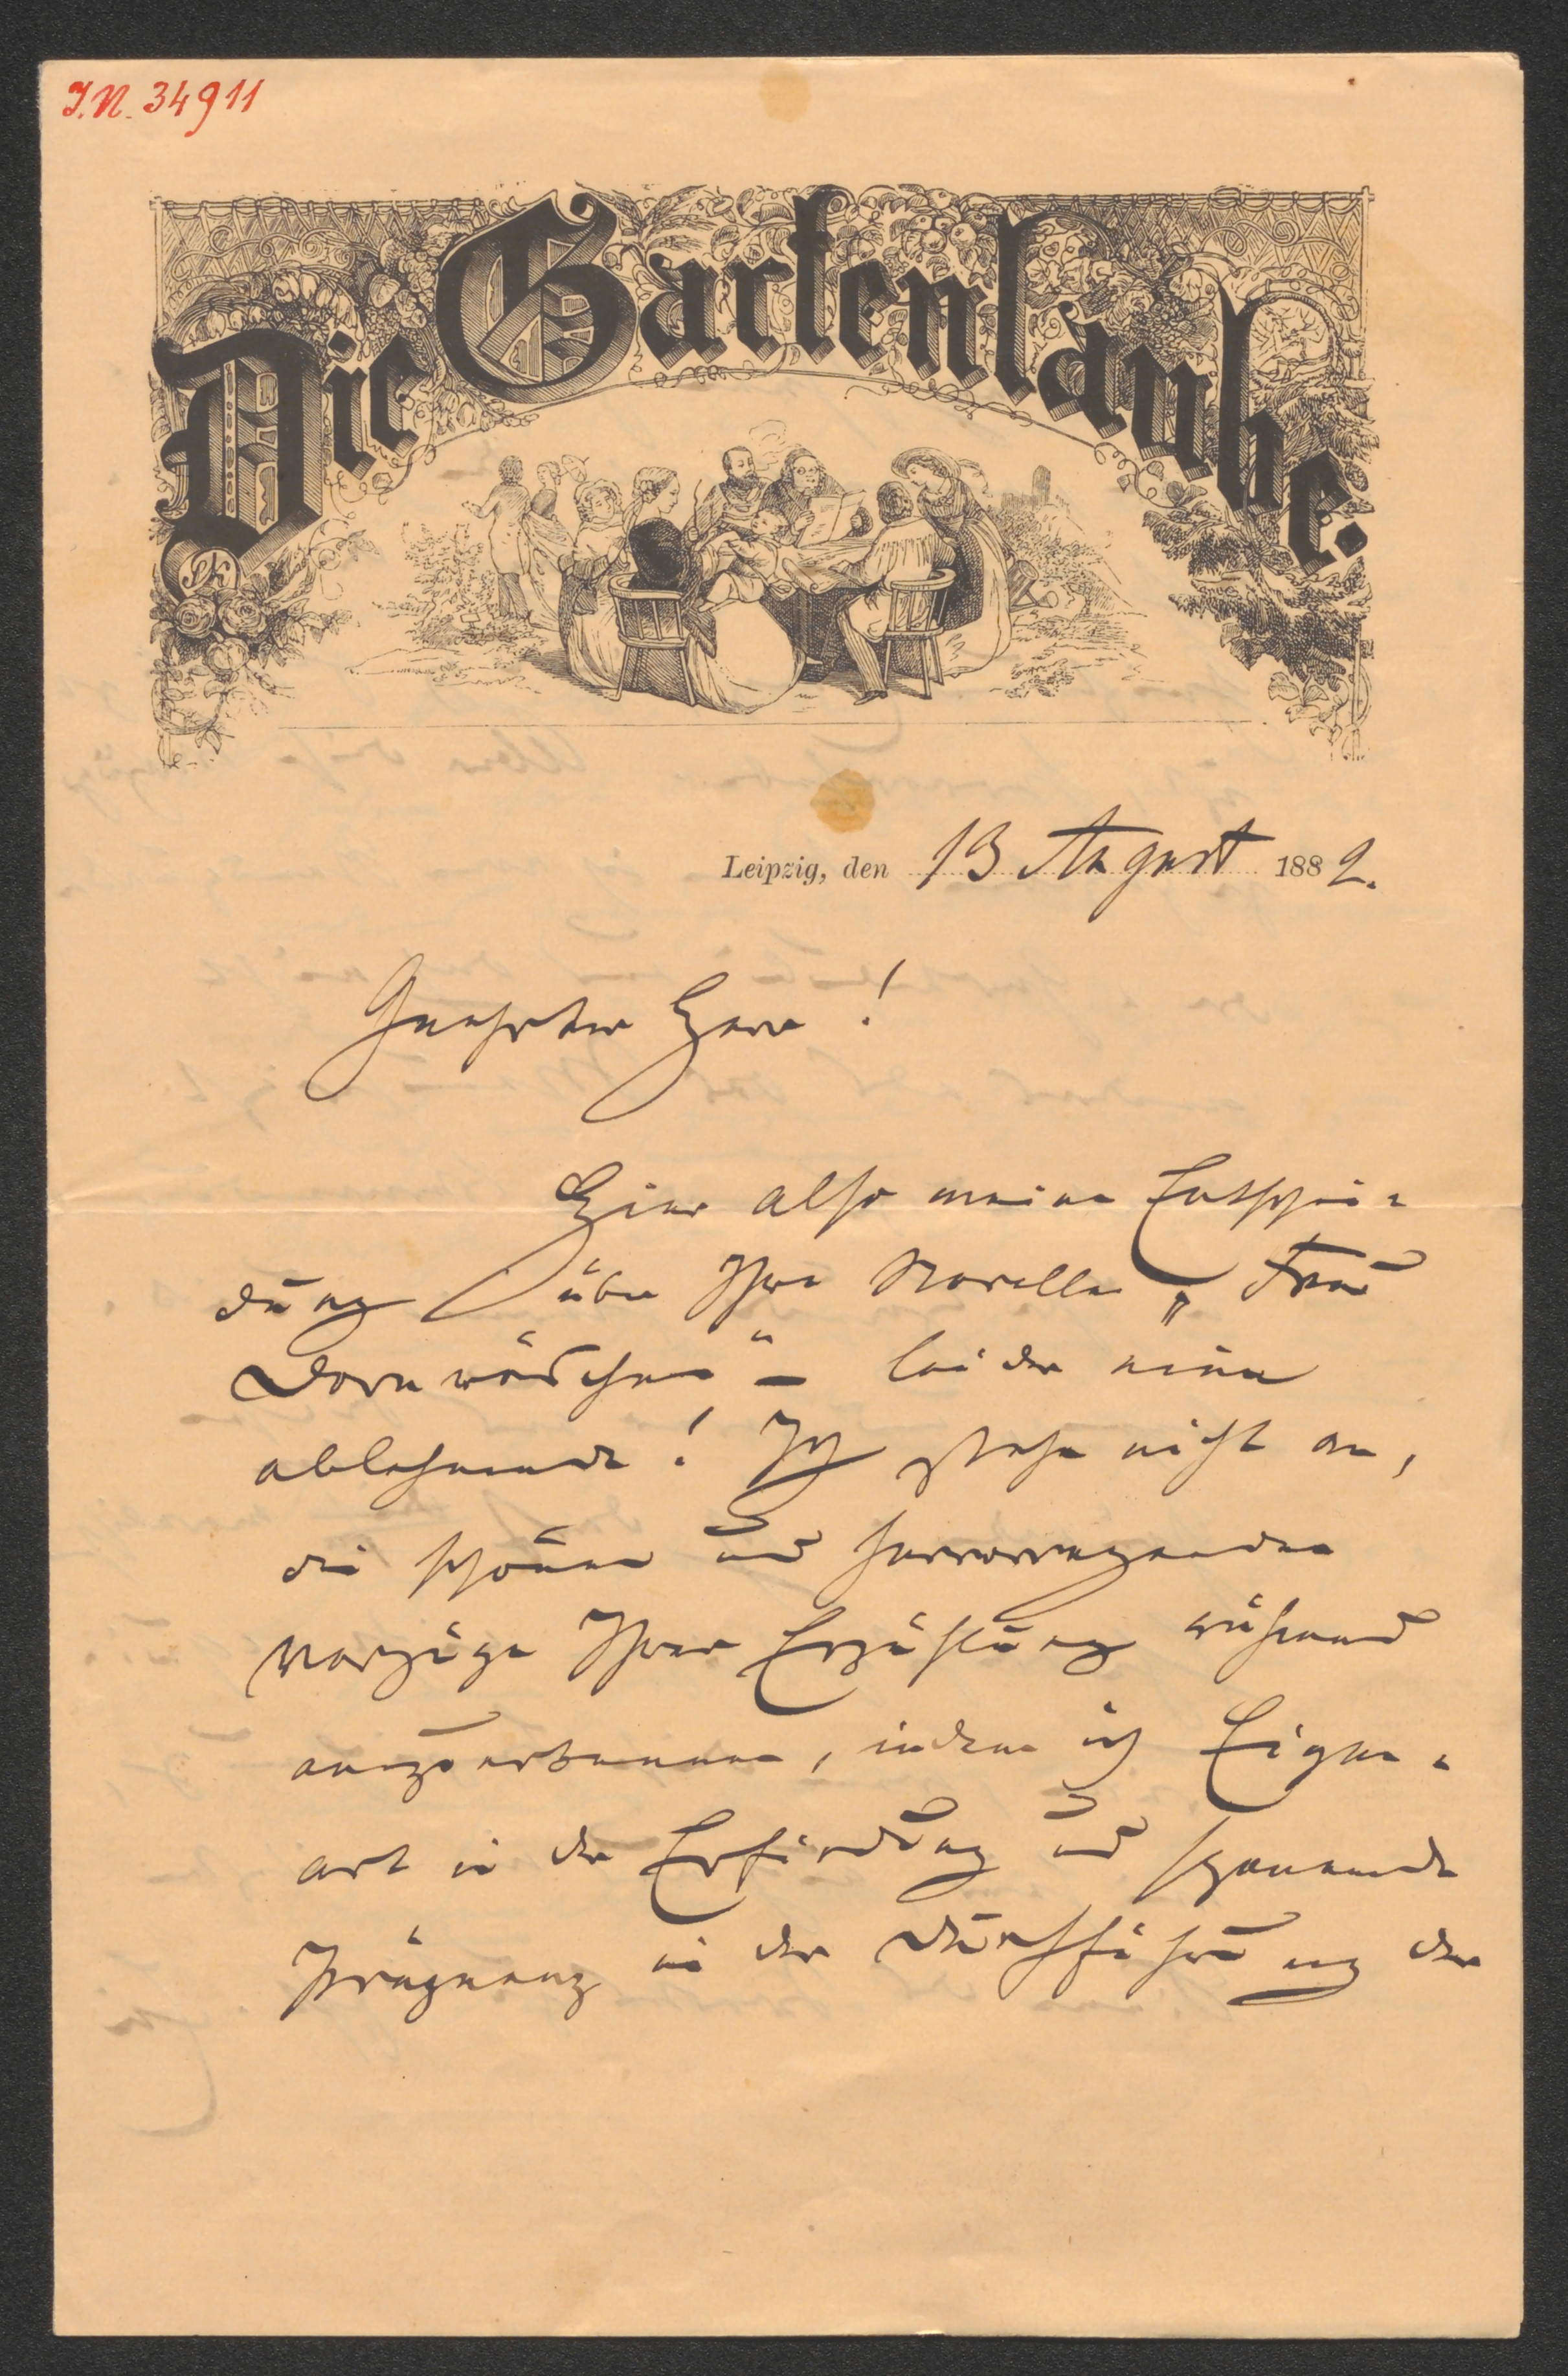 I.N. 34911
Die Gartenlaube.
Leipzig, den 13 August 1882.
Geehrter Herr!
Hier also meine Entschei-
dung über Ihre Novelle „Frau
Dornröschen“ – leider eine
ablehnende! Ich stehe nicht an,
die schönen und hervorragenden
Vorzüge Ihrer Erzählung rühmend
anzuerkennen, indem ich Eigen-
art in der Erfindung und spannende
Prägnanz in der Durchführung der